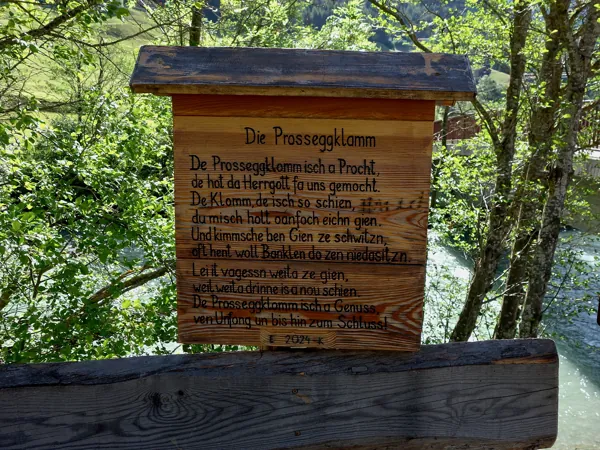 Die Prosseggklamm
De Prosseggklomm isch a Procht,
de hot da Herrgott fa uns gemocht.
De Klomm, de isch so schien,
du misch holt oanfoch eichn gien.
Und kimmsche ben Gien ze schwitzn,
aft hent woll Banklen do zen niedasitzn.
Lei it vagessn weita ze gien,
weil weita drinne is a nou schien.
De Prosseggklomm isch a Genuss
ven Unfong un bis hin zam Schluss!
E 2024 K